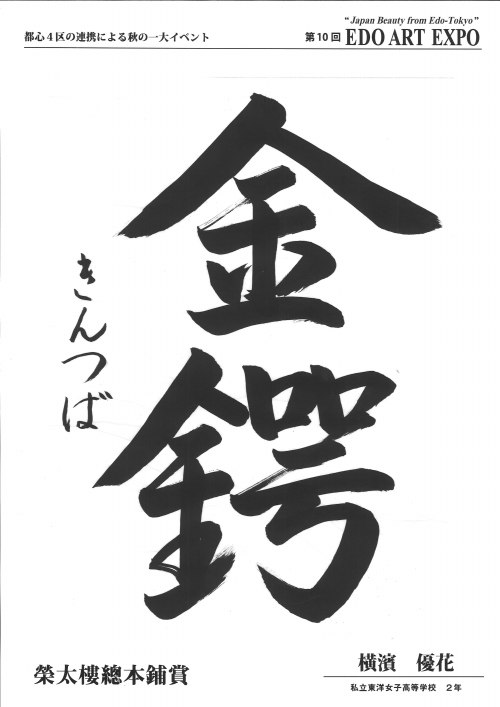 "Japan Beauty from Edo-Tokyo"
都心4区の連携による秋の一大イベント
第10回 EDO ART EXPO
金鍔
きんつば
榮太樓總本鋪賞
横濱 優花
私立東洋女子高等学校 2年